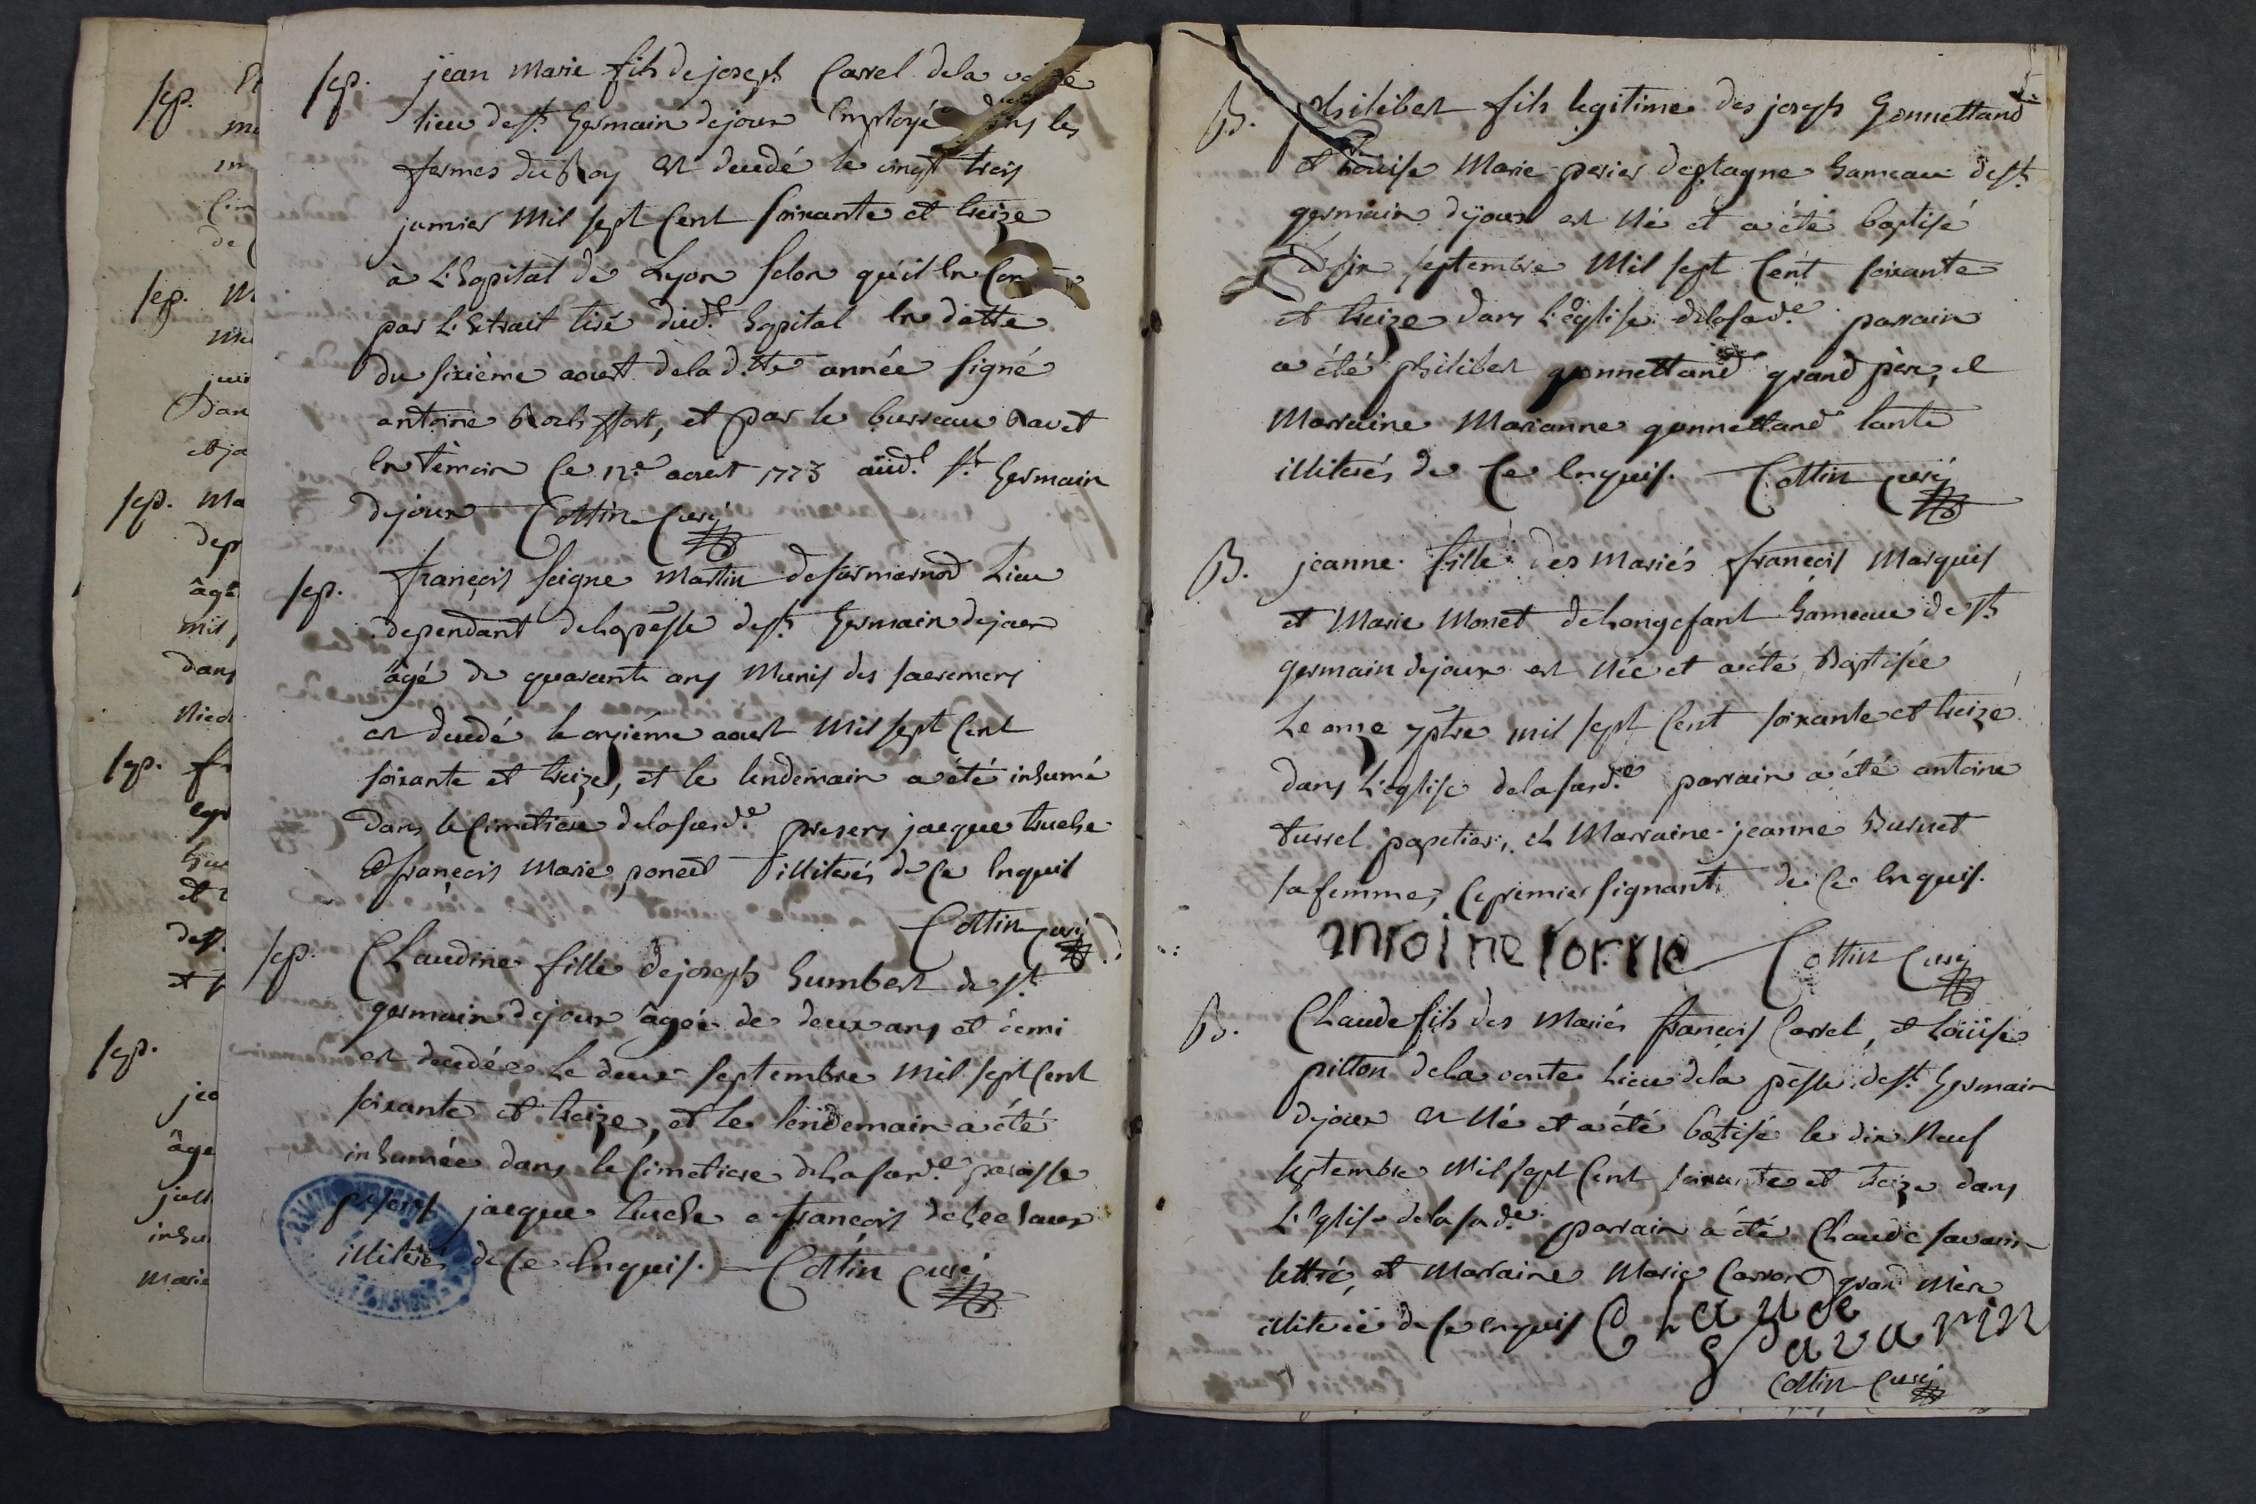 sep. jean Marie fils de joseph Carrel de la voute
lieu de st. Germain de joux Employé dans les
fermes du Roy est decedé le vingt trois
janvier Mil sept Cent soixante et treize
à L'hopital de Lyon selon qu'il En Conste
par L'Extrait tiré dud.t hopital En datte
du sixième aoust de la d.tte année signé
antoine Rochffort, et par le burreau Ravet
En témoin Ce 12e aoust 1773 aud.t st. Germain
de joux Cottin Curé
sep. françois seigne Martin de sur Lieu
dependant de la pesse de st. Germain de joux
âgé de quarante ans Munis des sacremens
est decedé le onziéme aoust Mil sept Cent
soixante et treize, et le lendemain a été inhumé
dans le Cimetiere de la sus de. presens jacque truche
et françois Marie poncet illiterés de Ce Enquis
Cottin Curé
sep. Claudine fille de joseph humbert de st.
germain de joux âgée de deux ans et demi
est decedée Le deux septembre Mil sept Cent
soixante et treize, et le lendemain a été
inhumée dans le Cimetiere de la sus de. paroisse
presens jacque truche e françois
illiterés de Ce Enquis. Cottin Curé
B. philibert fils legitime des joseph Gonnettand
et Loüise Marie perier de plagne hameau de st.
germain de joux est Né et a été baptisé
Le six septembre Mil sept Cent soixante
et treize dans L'église de la sus de. parrain
a été philibert gonnettand grand père, et
Marraine Marianne gonnettand tante
illiterés de Ce Enquis. Cottin Curé
B. jeanne fille des Mariés françois Marquis
et Marie Monet de Longefant hameau de st.
germain de joux est Née et a été Baptisée
Le onze 7bre mil sept Cent soixante et treize
dans L'eglise de la sus de. parrain a été antoine
turrel papetier, et Marraine jeanne Burnet
sa femme, Ce premier signant de Ce Enquis.
antoine Cottin Curé
B. Claude fils des Mariés françois Carrel, et Loüise
pitton de la voute Lieu de la pesse de st. Germain
de joux est Né et a été batisé le dix Neuf
septembre Mil sept Cent soixante et treize dans
L'Eglise de la sus de. parrain a été Claude savarin
lettré, et Marraine Marie Carron grand Mère
illiterée de Ce enquis Claude
Savarin
Cottin Curé